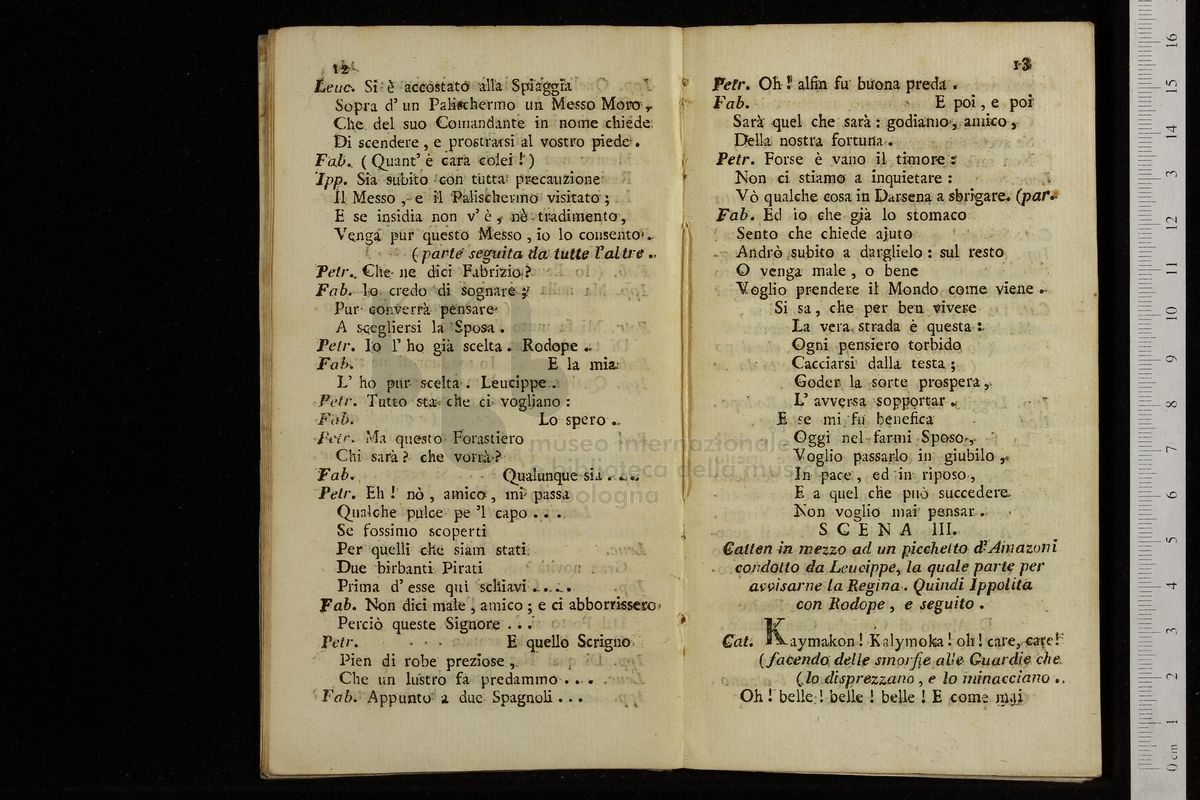 12
Leuc. Si è accostato alla Spiaggia
Sopra d' un Palischermo un Messo Moro,
Che del suo Comandante in nome chiede
Di scendere, e prostrarsi al vostro piede.
Fab. (Quant' è cara colei!)
Ipp. Sia subito con tutta precauzione
Il Messo, e il Palischermo visitato;
E se insidia non v' è, nè tradimento,
Venga pur questo Messo, io lo consento.
(parte seguita da tutte l'altre.
Petr. Che ne dici Fabrizio?
Fab. Io credo di sognare;
Pur converrà pensare
A scegliersi la Sposa.
Petr. Io l' ho già scelta. Rodope.
Fab. E la mia
L' ho pur scelta. Leucippe.
Petr. Tutto sta che ci vogliano:
Fab. Lo spero.
Petr. Ma questo Forastiero
Chi sarà? che vorrà?
Fab. Qualunque sia....
Petr. Eh! nò, amico, mi passa
Qualche pulce pe 'l capo...
Se fossimo scoperti
Per quelli che siam stati
Due birbanti Pirati
Prima d' esse quì schiavi.....
Fab. Non dici male, amico; e ci abborrissero
Perciò queste Signore...
Petr. E quello Scrigno
Pien di robe preziose,
Che un lustro fa predammo....
Fab. Appunto a due Spagnoli...
13
Petr. Oh! alfin fu buona preda.
Fab. E poi, e poi
Sarà quel che sarà: godiamo, amico,
Della nostra fortuna.
Petr. Forse è vano il timore:
Non ci stiamo a inquietare:
Vò qualche cosa in Darsena a sbrigare. (par.
Fab. Ed io che già lo stomaco
Sento che chiede ajuto
Andrò subito a darglielo: sul resto
O venga male, o bene
Voglio prendere il Mondo come viene.
Si sa, che per ben vivere
La vera strada è questa:
Ogni pensiero torbido
Cacciarsi dalla testa;
Goder la sorte prospera,
L' avversa sopportar.
E se mi fu benefica
Oggi nel farmi Sposo,
Voglio passarlo in giubilo,
In pace, ed in riposo,
E a quel che può succedere
Non voglio mai pensar.
SCENA III.
Catten in mezzo ad un picchetto d'Amazoni
condotto da Leucippe, la quale parte per
avvisarne la Regina. Quindi Ippolita
con Rodope, e seguito.
Cat. Kaymakon! Kalymoka! oh! care, care!
(facendo delle smorfie alle Guardie che
(lo disprezzano, e lo minacciano.
Oh! belle! belle! belle! E come mai
museo internazionale
biblioteca della musica
bologna
0 cm 1 2 3 4 5 6 7 8 9 10 11 12 13 14 15 16